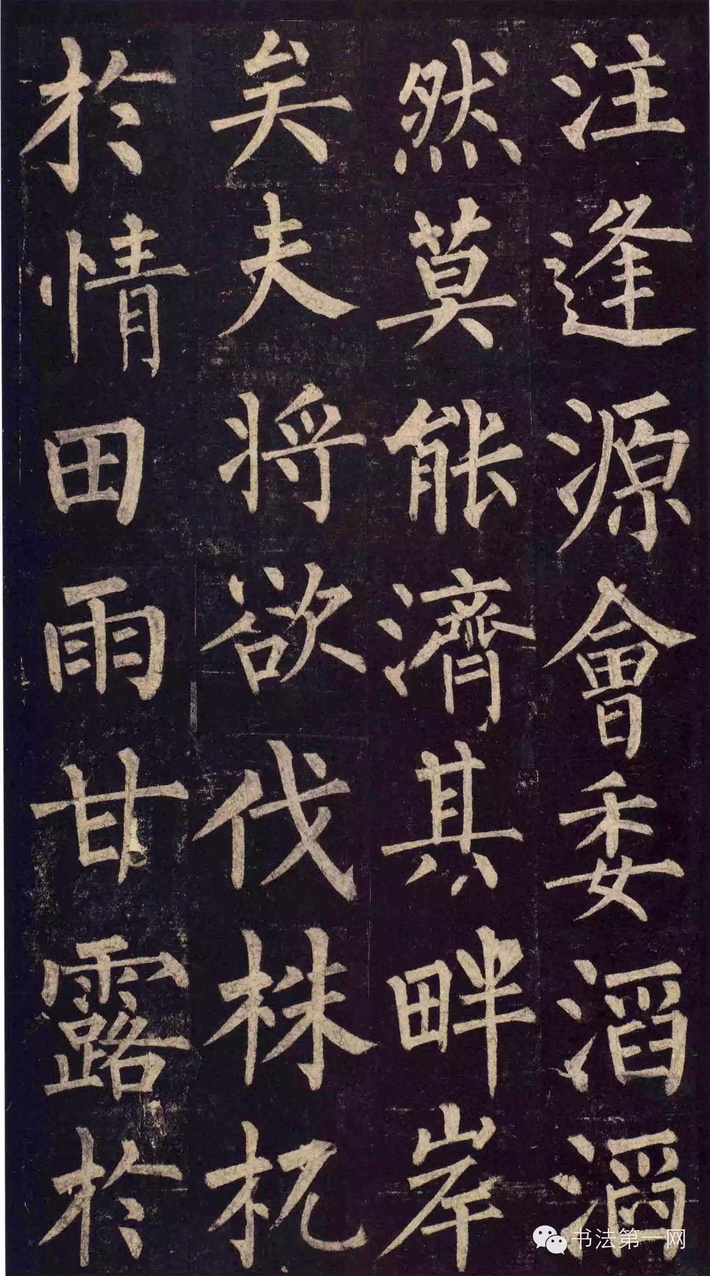 注逢源會委滔滔
然莫能濟其畔岸
矣夫将欲伐株杌
於情田雨甘露於
书法第一网